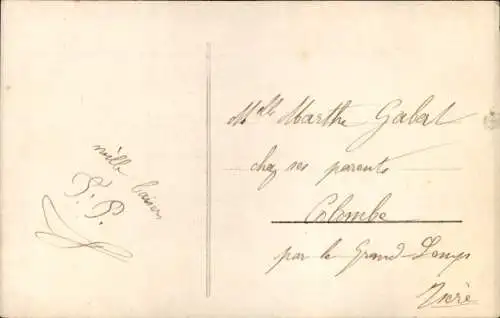 mille baisers
P. P.
Mlle Marthe Gabat
chez ses parents
Colombe
par le Grand-Lemps
Isère